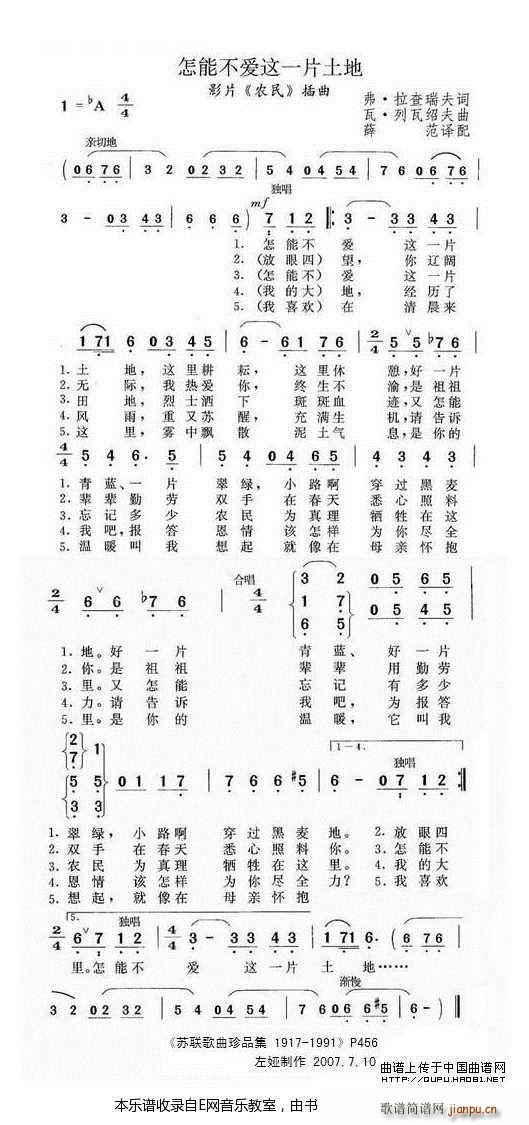 怎能不爱这一片土地
影片《农民》插曲
1=♭A 4/4
弗·拉查瑞夫词
瓦·列瓦绍夫曲
薛 范译配
亲切地
( 0 6 7 6 3 2 0 2 3 2 5 4 0 5 4 7 6 0 6 7 6
独唱
3 - 0 3 4 3 1 7 6 - 6 6 6 ) mf 7 1 2 3 - 3 3 4 3
1. 怎能不 爱 这一片
2. (放眼四) 望, 你辽阔
3. (怎能不) 爱 这一片
4. (我的大) 地, 经历了
5. (我喜欢) 在 清晨来
1 7 1 6 0 3 4 5 6 - 6 1 7 6 2/4 5 5 ♭7 6
1. 土 地, 这里耕 耘, 这里休 憩, 好一片
2. 无 际, 我热爱 你, 终生不 渝, 是祖祖
3. 田 地, 烈士洒 下 斑斑血 迹, 又怎能
4. 风 雨, 重又苏 醒, 充满生 机, 请告诉
5. 这 里, 雾中飘 散 泥土气 息, 是你的
4/4 5 4 6 · 5 5 4 0 4 5 4 7 6 5 4 3
1. 青蓝、一片 翠绿, 小路啊 穿过黑麦
2. 辈辈勤劳 双手 在春天 悉心照料
3. 忘记多少 农民 为真理 牺牲在这
4. 我吧, 报答 恩情 该怎样 为你尽全
5. 温暖叫我 想起 就像在 母亲怀抱
合唱
2/4 6 6 ♭7 6 4/4 3 2 0 5 6 5
1 7 0 4 5 4
6 5
1. 地。好一片 青蓝、 好一片
2. 你。是祖祖 辈辈 用勤劳
3. 里。又怎能 忘记 有多少
4. 力。请告诉 我吧, 为报答
5. 里。是你的 温暖, 它叫我
1-4. 独唱
2 7 1 5 5 3 3 0 1 1 7 7 6 6 ♯5 6 - 0 7 1 2
1. 翠绿, 小路啊 穿过黑麦 地。 2. 放眼四
2. 双手 在春天 悉心照料 你。 3. 怎能不
3. 农民 为真理 牺牲在这 里。 4. 我的大
4. 恩情 该怎样 为你尽全 力? 5. 我喜欢
5. 想起, 就像在 母亲怀抱
5. 独唱
2/4 6 7 1 2 4/4 3 - 3 3 4 3 1 7 1 6 · ( 6 7 6
里。怎能不 爱 这一片 土 地……
渐慢
3 2 0 2 3 2 5 4 0 5 4 7 6 0 6 ♯5 6 - )
《苏联歌曲珍品集 1917-1991》P456
左娅制作 2007.7.10
曲谱上传于中国曲谱网
http://QUPU.HAO81.NET
本乐谱收录自E网音乐教室，由书
歌谱简谱网
jianpu.cn